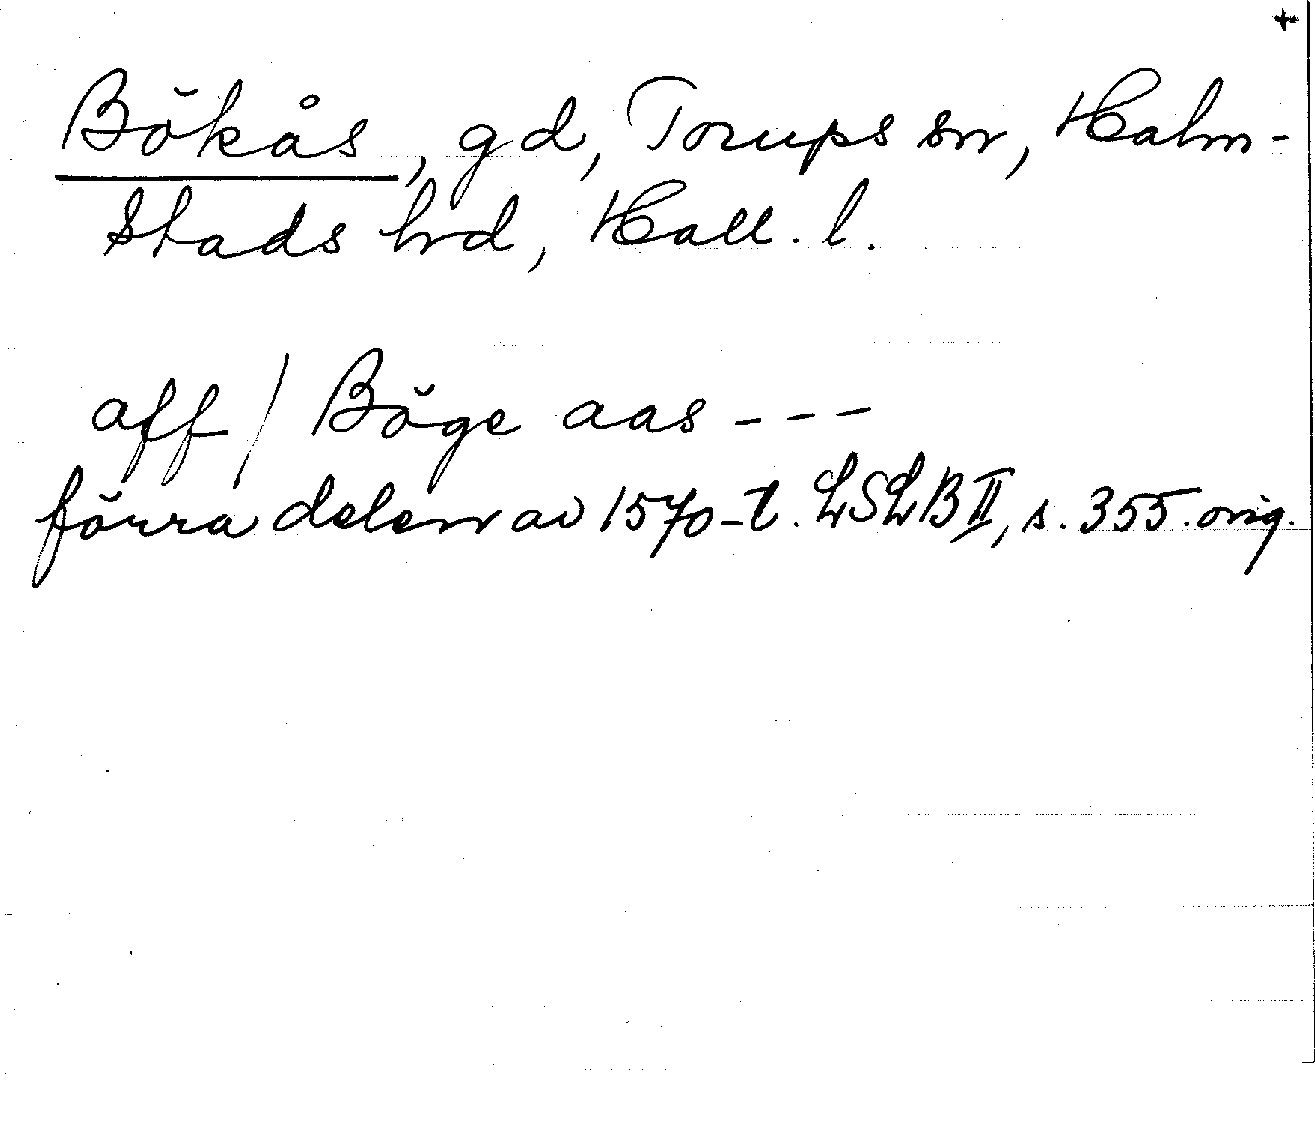 +
Bökås, gd, Torups sn, Halm-
stads hrd, Hall. l.
aff / Böge aas ---
förra delen av 1570-t. LSLB II, s. 355. orig.